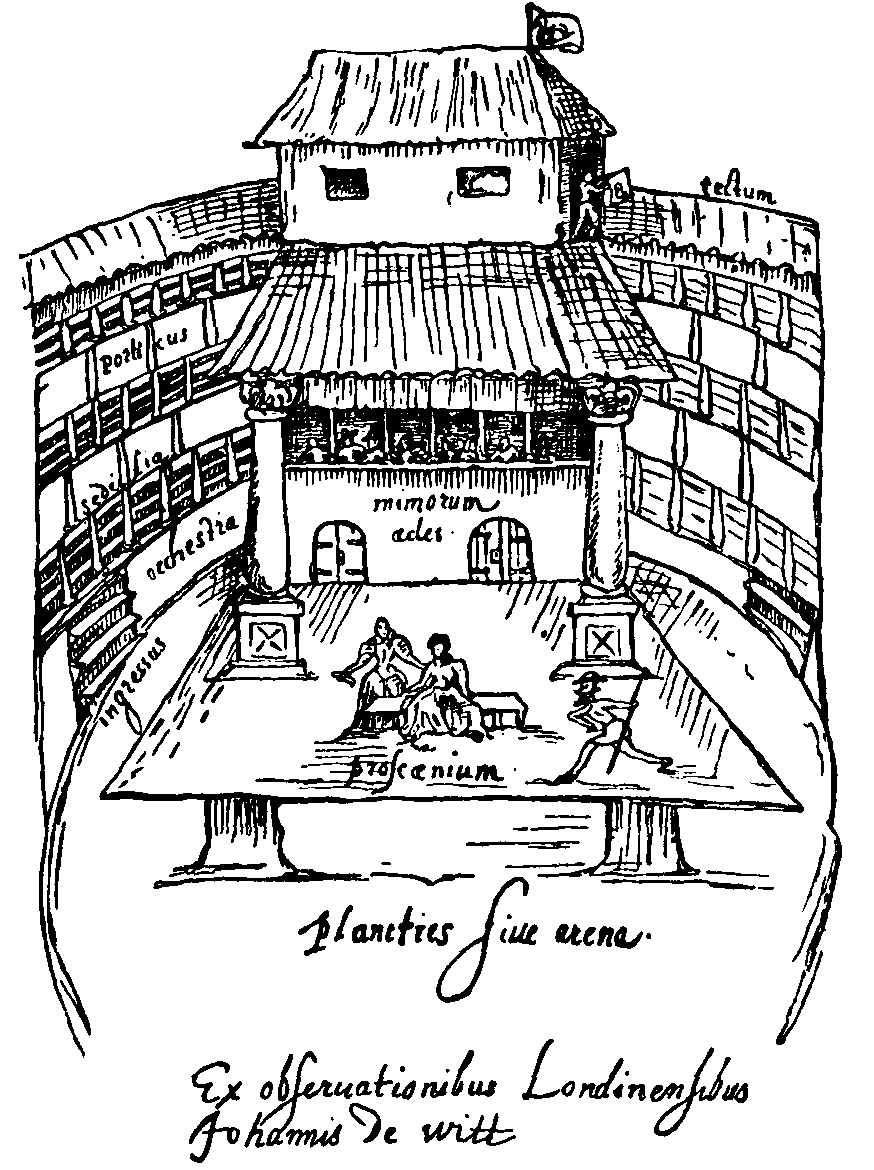 tectum
porticus
sedilia
orchestra
mimorum
ædes
ingressus
proscænium
planeties siue arena.
Ex obseruationibus Londinensibus
Johannis De witt